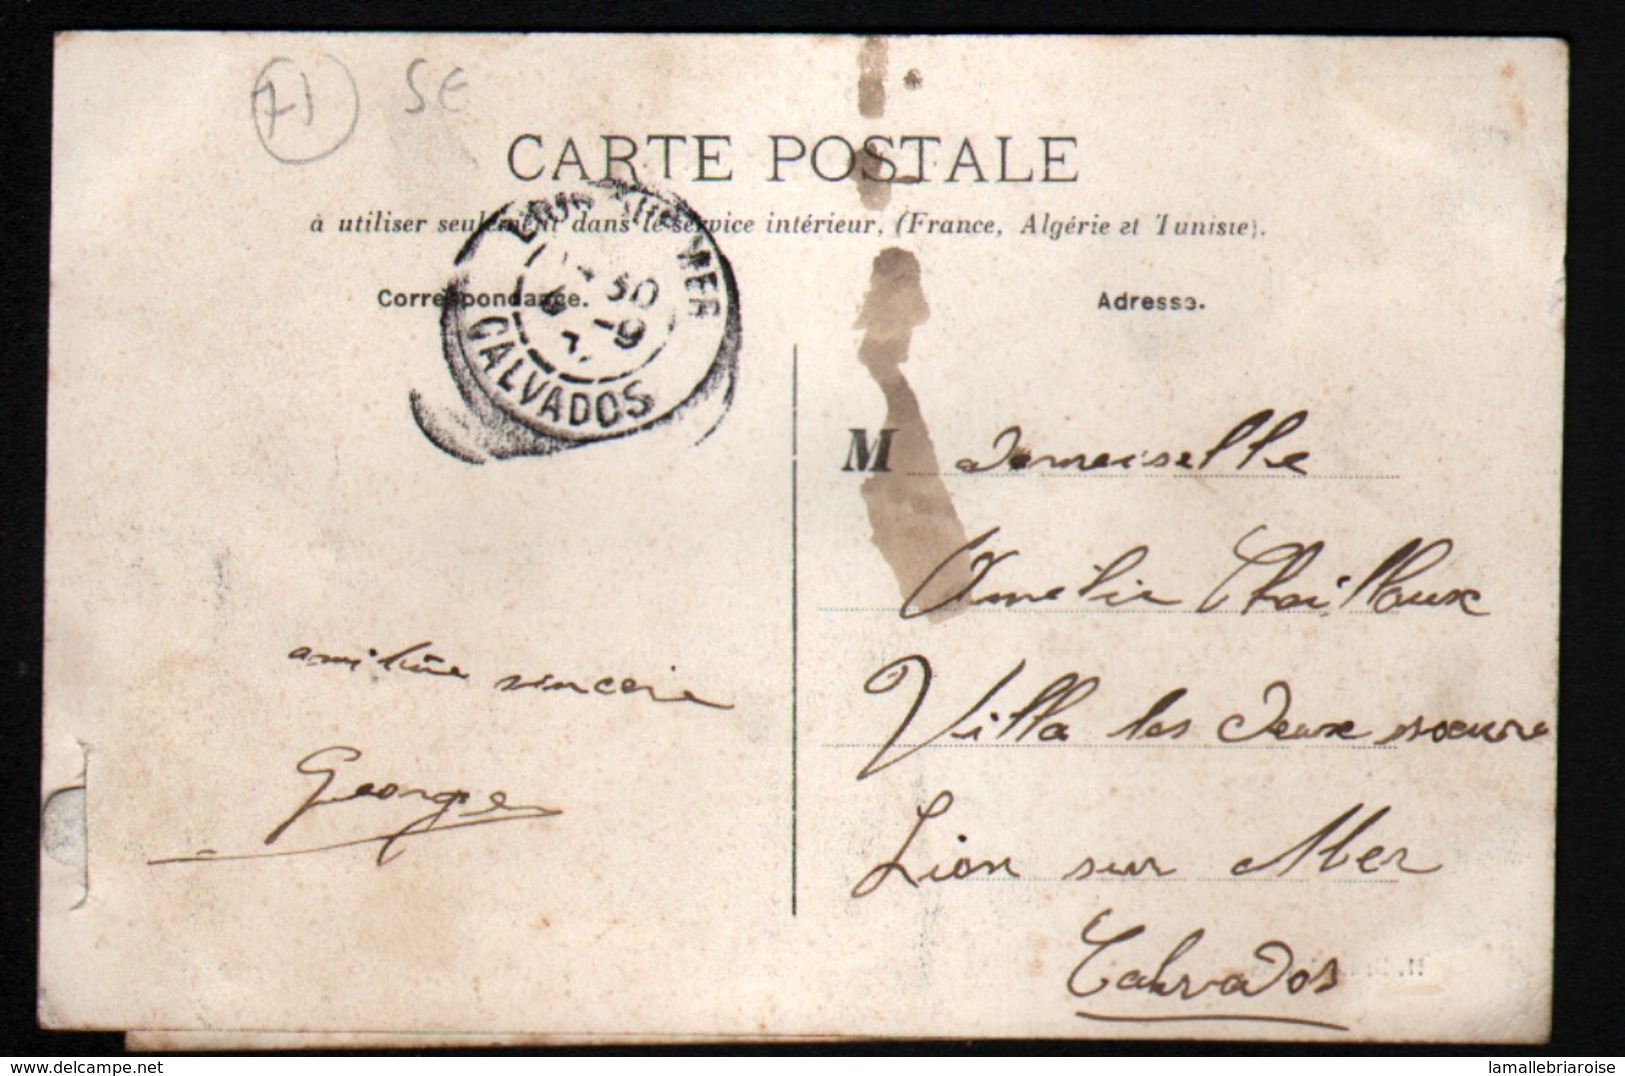 71 SE
CARTE POSTALE
à utiliser seulement dans le service intérieur, (France, Algérie et Tunisie).
Correspondance.
Adresse.
LION SUR MER
30
-9
CALVADOS
M ademoiselle
Amélie Chailloux
Villa les deux soeurs
Lion sur Mer
Calvados
amitiée sincère
Georges
delcampe.net
lamallebriaroise